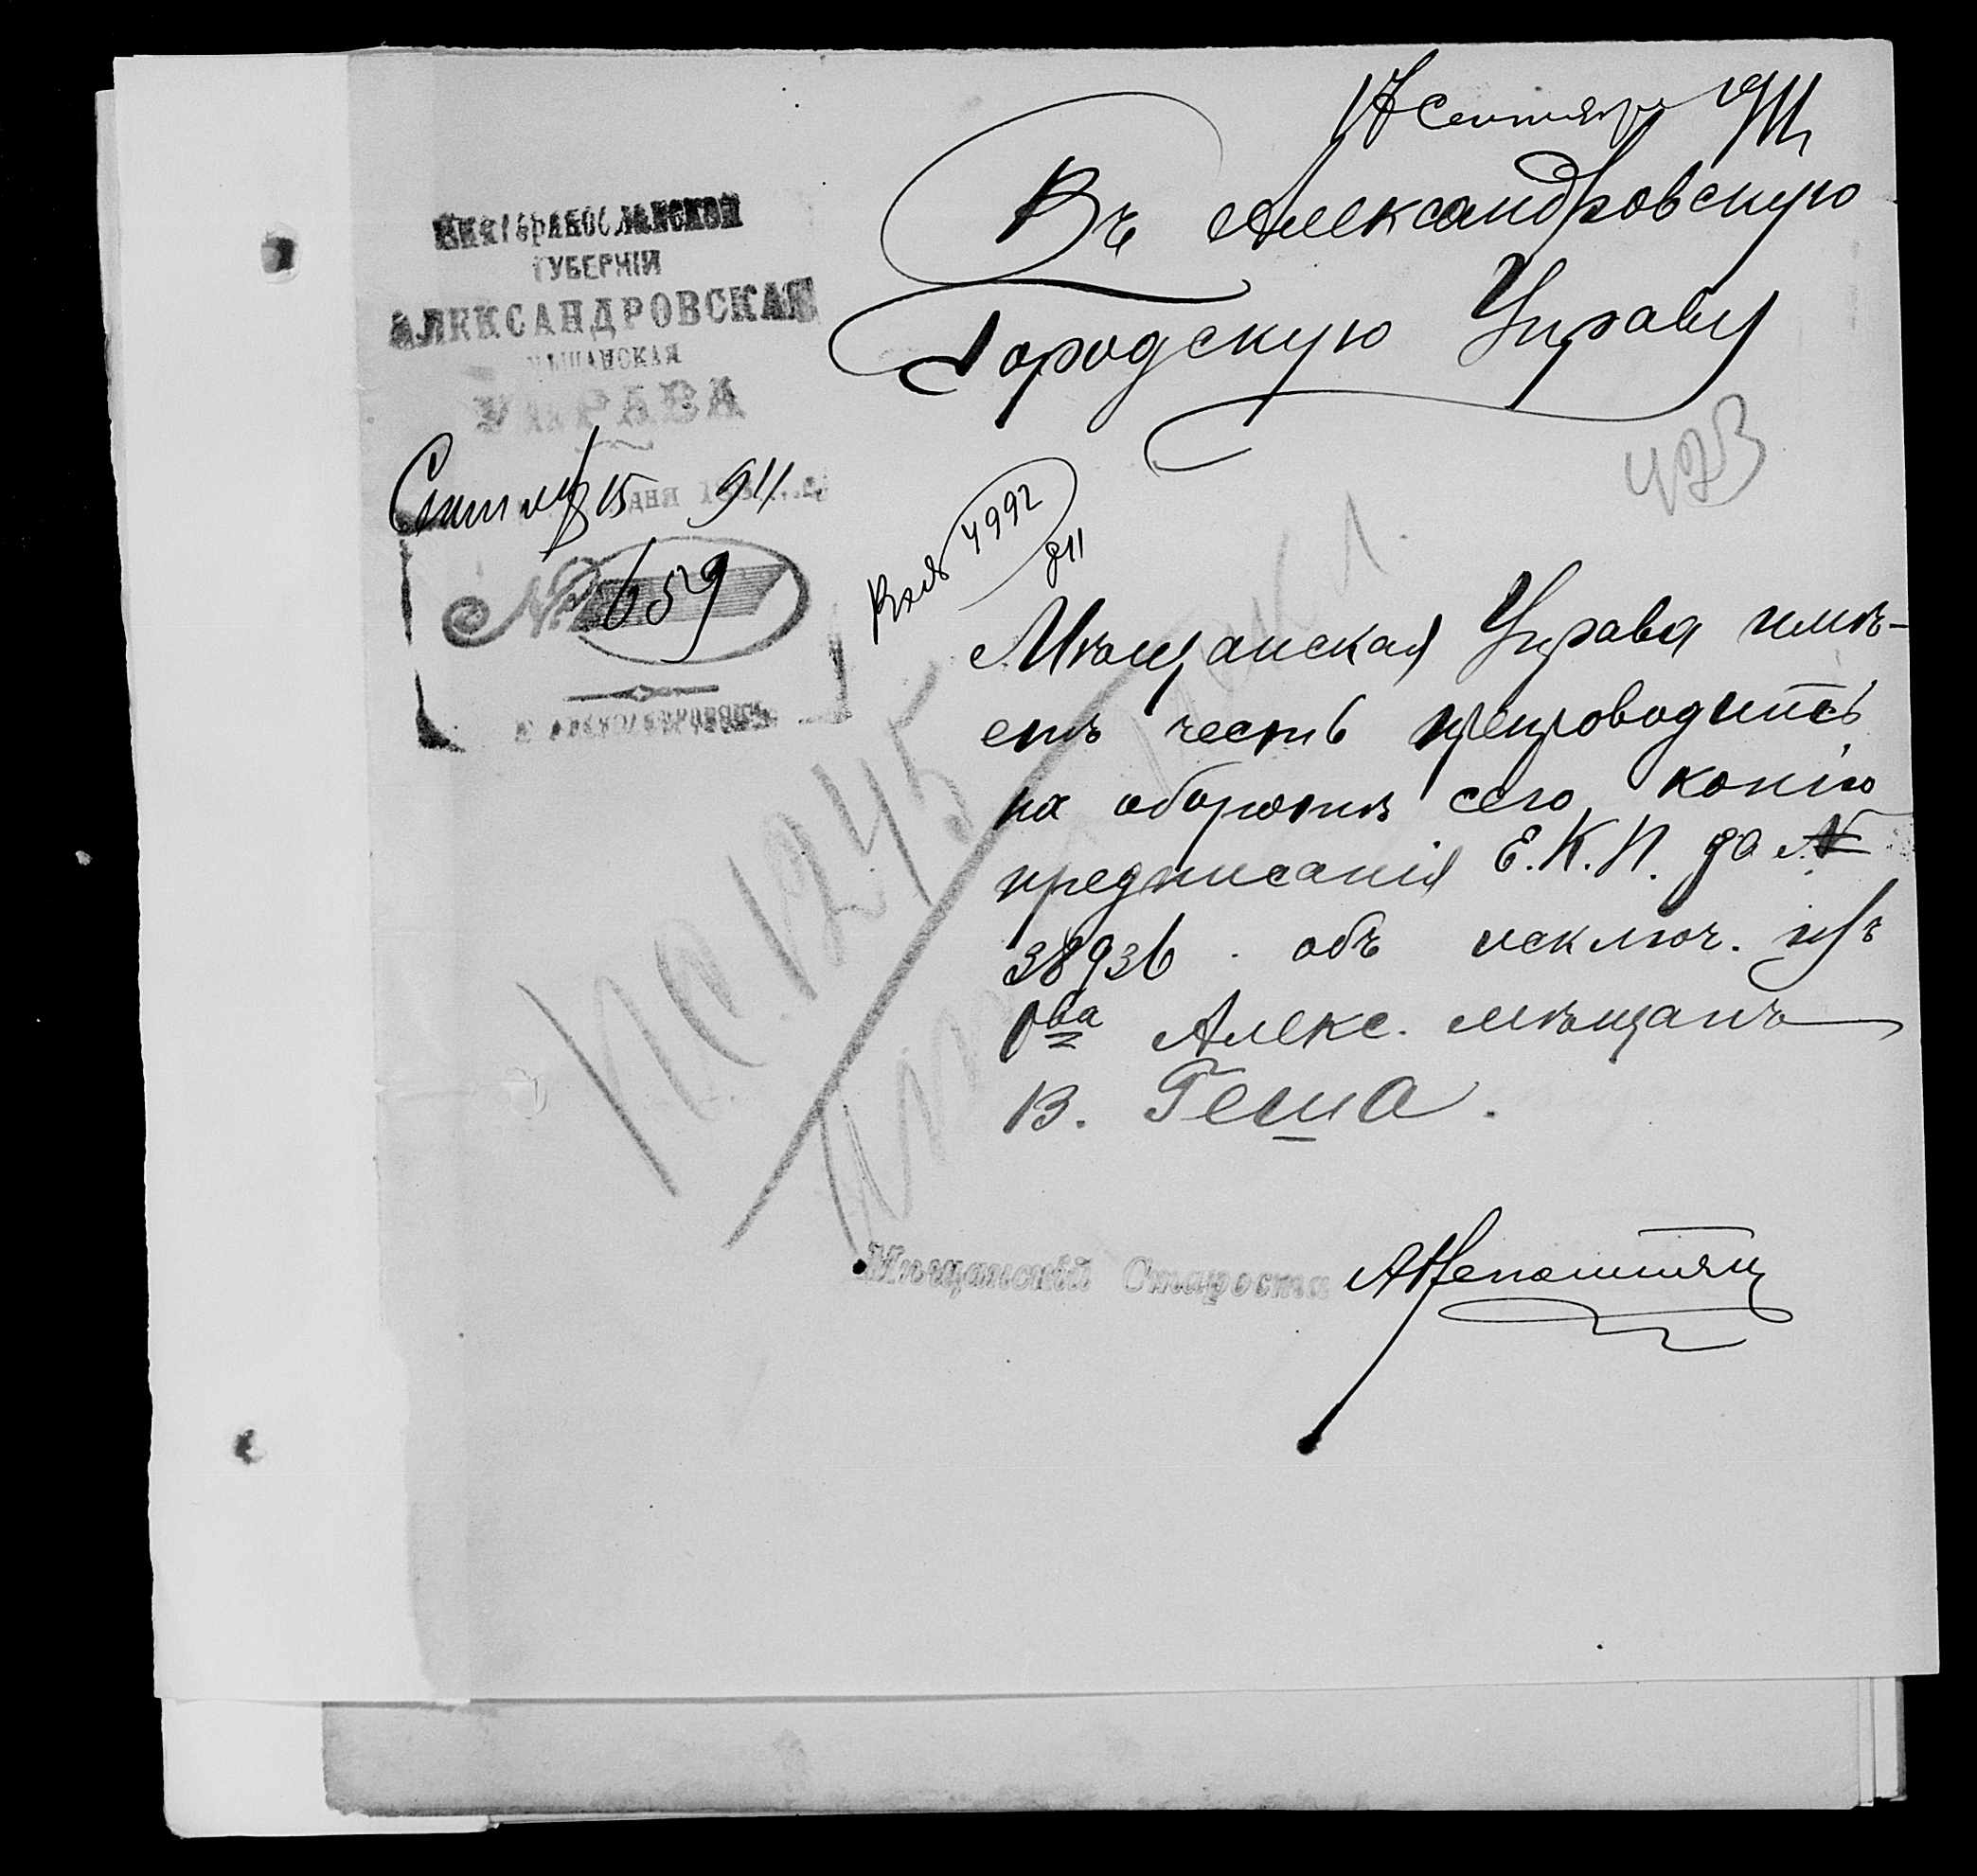 17 Сентября 1911
Въ Александровскую
Городскую Управу
423
ЕКАТЕРИНОСЛАВСКОЙ
ГУБЕРНІИ
АЛЕКСАНДРОВСКАЯ
МѢЩАНСКАЯ
УПРАВА
Сентября 15 дня 1911 г.
№ 659
Г. АЛЕКСАНДРОВСКЪ
Вход 4992
911
1245
Мѣщанская Управа имѣ-
етъ честь препроводить
на оборотѣ сего копію
предписанія Е.К.П. за №
38936 . объ исключ. изъ
о-ва Алекс. мѣщанъ
В. Геша.
Мѣщанскій Староста